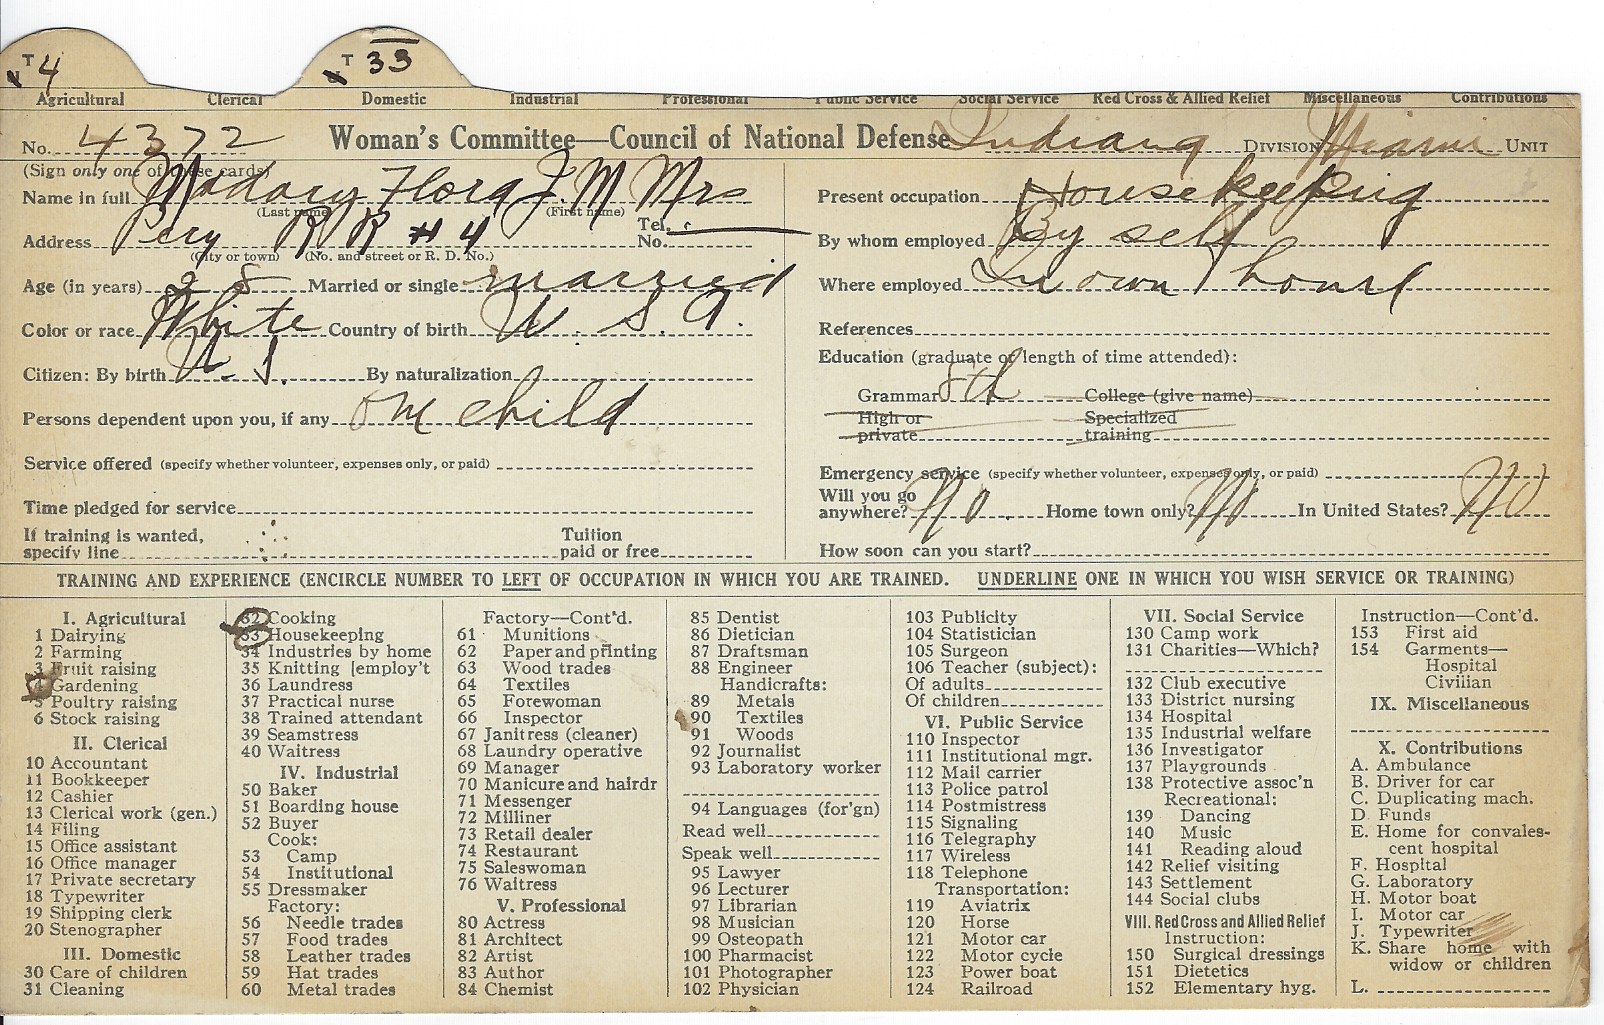 T 4 T 33
Agricultural Clerical Domestic Industrial Professional Public Service Social Service Red Cross & Allied Relief Miscellaneous Contributions
No. 4372 Woman's Committee—Council of National Defense Indiana DIVISION Miami UNIT
(Sign only one of these cards)
Name in full Madary Flora J. M Mrs
(Last name) (First name)
Address Peru R R #4 Tel. No.
(City or town) (No. and street or R. D. No.)
Age (in years) 28 Married or single married
Color or race White Country of birth U. S. A.
Citizen: By birth U. S. By naturalization
Persons dependent upon you, if any one child
Service offered (specify whether volunteer, expenses only, or paid)
Time pledged for service
If training is wanted, specify line Tuition paid or free
Present occupation Housekeeping
By whom employed By self
Where employed In own home
References
Education (graduate or length of time attended):
Grammar 8th College (give name)
High or private Specialized training
Emergency service (specify whether volunteer, expenses only, or paid)
Will you go anywhere? No. Home town only? No In United States? No
How soon can you start?
TRAINING AND EXPERIENCE (ENCIRCLE NUMBER TO LEFT OF OCCUPATION IN WHICH YOU ARE TRAINED. UNDERLINE ONE IN WHICH YOU WISH SERVICE OR TRAINING)
I. Agricultural
1 Dairying
2 Farming
3 Fruit raising
4 Gardening
5 Poultry raising
6 Stock raising
II. Clerical
10 Accountant
11 Bookkeeper
12 Cashier
13 Clerical work (gen.)
14 Filing
15 Office assistant
16 Office manager
17 Private secretary
18 Typewriter
19 Shipping clerk
20 Stenographer
III. Domestic
30 Care of children
31 Cleaning
32 Cooking
33 Housekeeping
34 Industries by home
35 Knitting [employ't
36 Laundress
37 Practical nurse
38 Trained attendant
39 Seamstress
40 Waitress
IV. Industrial
50 Baker
51 Boarding house
52 Buyer
Cook:
53 Camp
54 Institutional
55 Dressmaker
Factory:
56 Needle trades
57 Food trades
58 Leather trades
59 Hat trades
60 Metal trades
Factory—Cont'd.
61 Munitions
62 Paper and printing
63 Wood trades
64 Textiles
65 Forewoman
66 Inspector
67 Janitress (cleaner)
68 Laundry operative
69 Manager
70 Manicure and hairdr
71 Messenger
72 Milliner
73 Retail dealer
74 Restaurant
75 Saleswoman
76 Waitress
V. Professional
80 Actress
81 Architect
82 Artist
83 Author
84 Chemist
85 Dentist
86 Dietician
87 Draftsman
88 Engineer
Handicrafts:
89 Metals
90 Textiles
91 Woods
92 Journalist
93 Laboratory worker
94 Languages (for'gn)
Read well
Speak well
95 Lawyer
96 Lecturer
97 Librarian
98 Musician
99 Osteopath
100 Pharmacist
101 Photographer
102 Physician
103 Publicity
104 Statistician
105 Surgeon
106 Teacher (subject):
Of adults
Of children
VI. Public Service
110 Inspector
111 Institutional mgr.
112 Mail carrier
113 Police patrol
114 Postmistress
115 Signaling
116 Telegraphy
117 Wireless
118 Telephone
Transportation:
119 Aviatrix
120 Horse
121 Motor car
122 Motor cycle
123 Power boat
124 Railroad
VII. Social Service
130 Camp work
131 Charities—Which?
132 Club executive
133 District nursing
134 Hospital
135 Industrial welfare
136 Investigator
137 Playgrounds
138 Protective assoc'n
Recreational:
139 Dancing
140 Music
141 Reading aloud
142 Relief visiting
143 Settlement
144 Social clubs
VIII. Red Cross and Allied Relief
Instruction:
150 Surgical dressings
151 Dietetics
152 Elementary hyg.
Instruction—Cont'd.
153 First aid
154 Garments—
Hospital
Civilian
IX. Miscellaneous
X. Contributions
A. Ambulance
B. Driver for car
C. Duplicating mach.
D. Funds
E. Home for convales-
cent hospital
F. Hospital
G. Laboratory
H. Motor boat
I. Motor car
J. Typewriter
K. Share home with
widow or children
L.